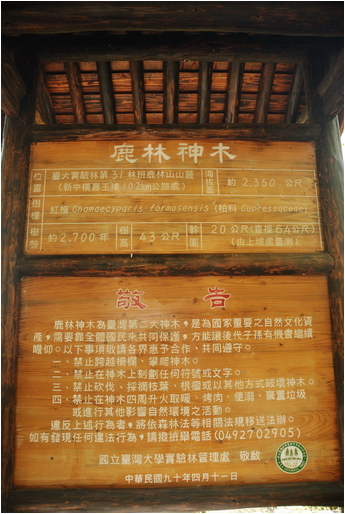 鹿林神木
位置 臺大實驗林第31林班鹿林山山麓 (新中橫嘉玉線102km公路處) 海拔高 約2,350公尺
樹種 紅檜 Chamaecyparis formosensis (柏科 Cupressaceae)
樹齡 約2,700年 樹高 43公尺 幹圍 20公尺(直徑6.4公尺) (由上坡處量測)
敬告
鹿林神木為臺灣第二大神木，是為國家重要之自然文化資
產，需要靠全體國民來共同保護，方能讓後代子孫有機會繼續
瞻仰。以下事項敬請各界惠予合作、共同遵守。
一、禁止跨越柵欄、攀爬神木。
二、禁止在神木上刻劃任何符號或文字。
三、禁止砍伐、採摘枝葉、根瘤或以其他方式破壞神木。
四、禁止在神木四周升火取暖、烤肉、便溺、棄置垃圾
或進行其他影響自然環境之活動。
違反上述行為者，將依森林法等相關法規移送法辦。
如有發現任何違法行為，請撥檢舉電話(0492702905)
國立臺灣大學實驗林管理處 敬啟
中華民國九十年四月十一日